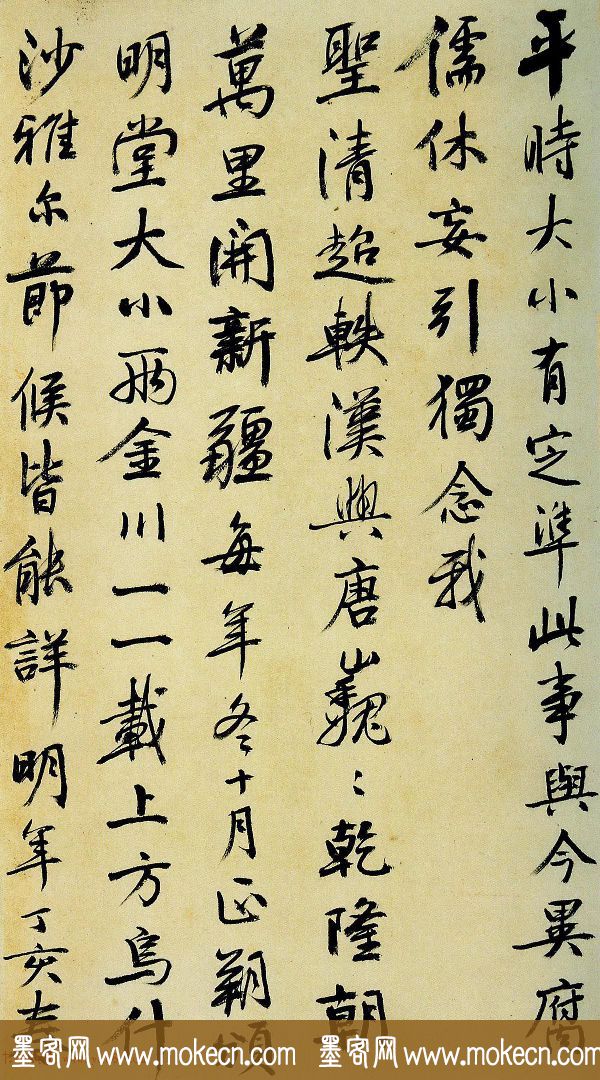 平時大小有定準此事與今異腐
儒休妄引獨念我
聖清超軼漢與唐巍〻乾隆朝
萬里開新疆每年冬十月正朔頒
明堂大小兩金川一一載上方烏什
沙雅尔節候皆能詳明年丁亥春
墨客网 www.mokecn.com 墨客网 www.mokecn.com